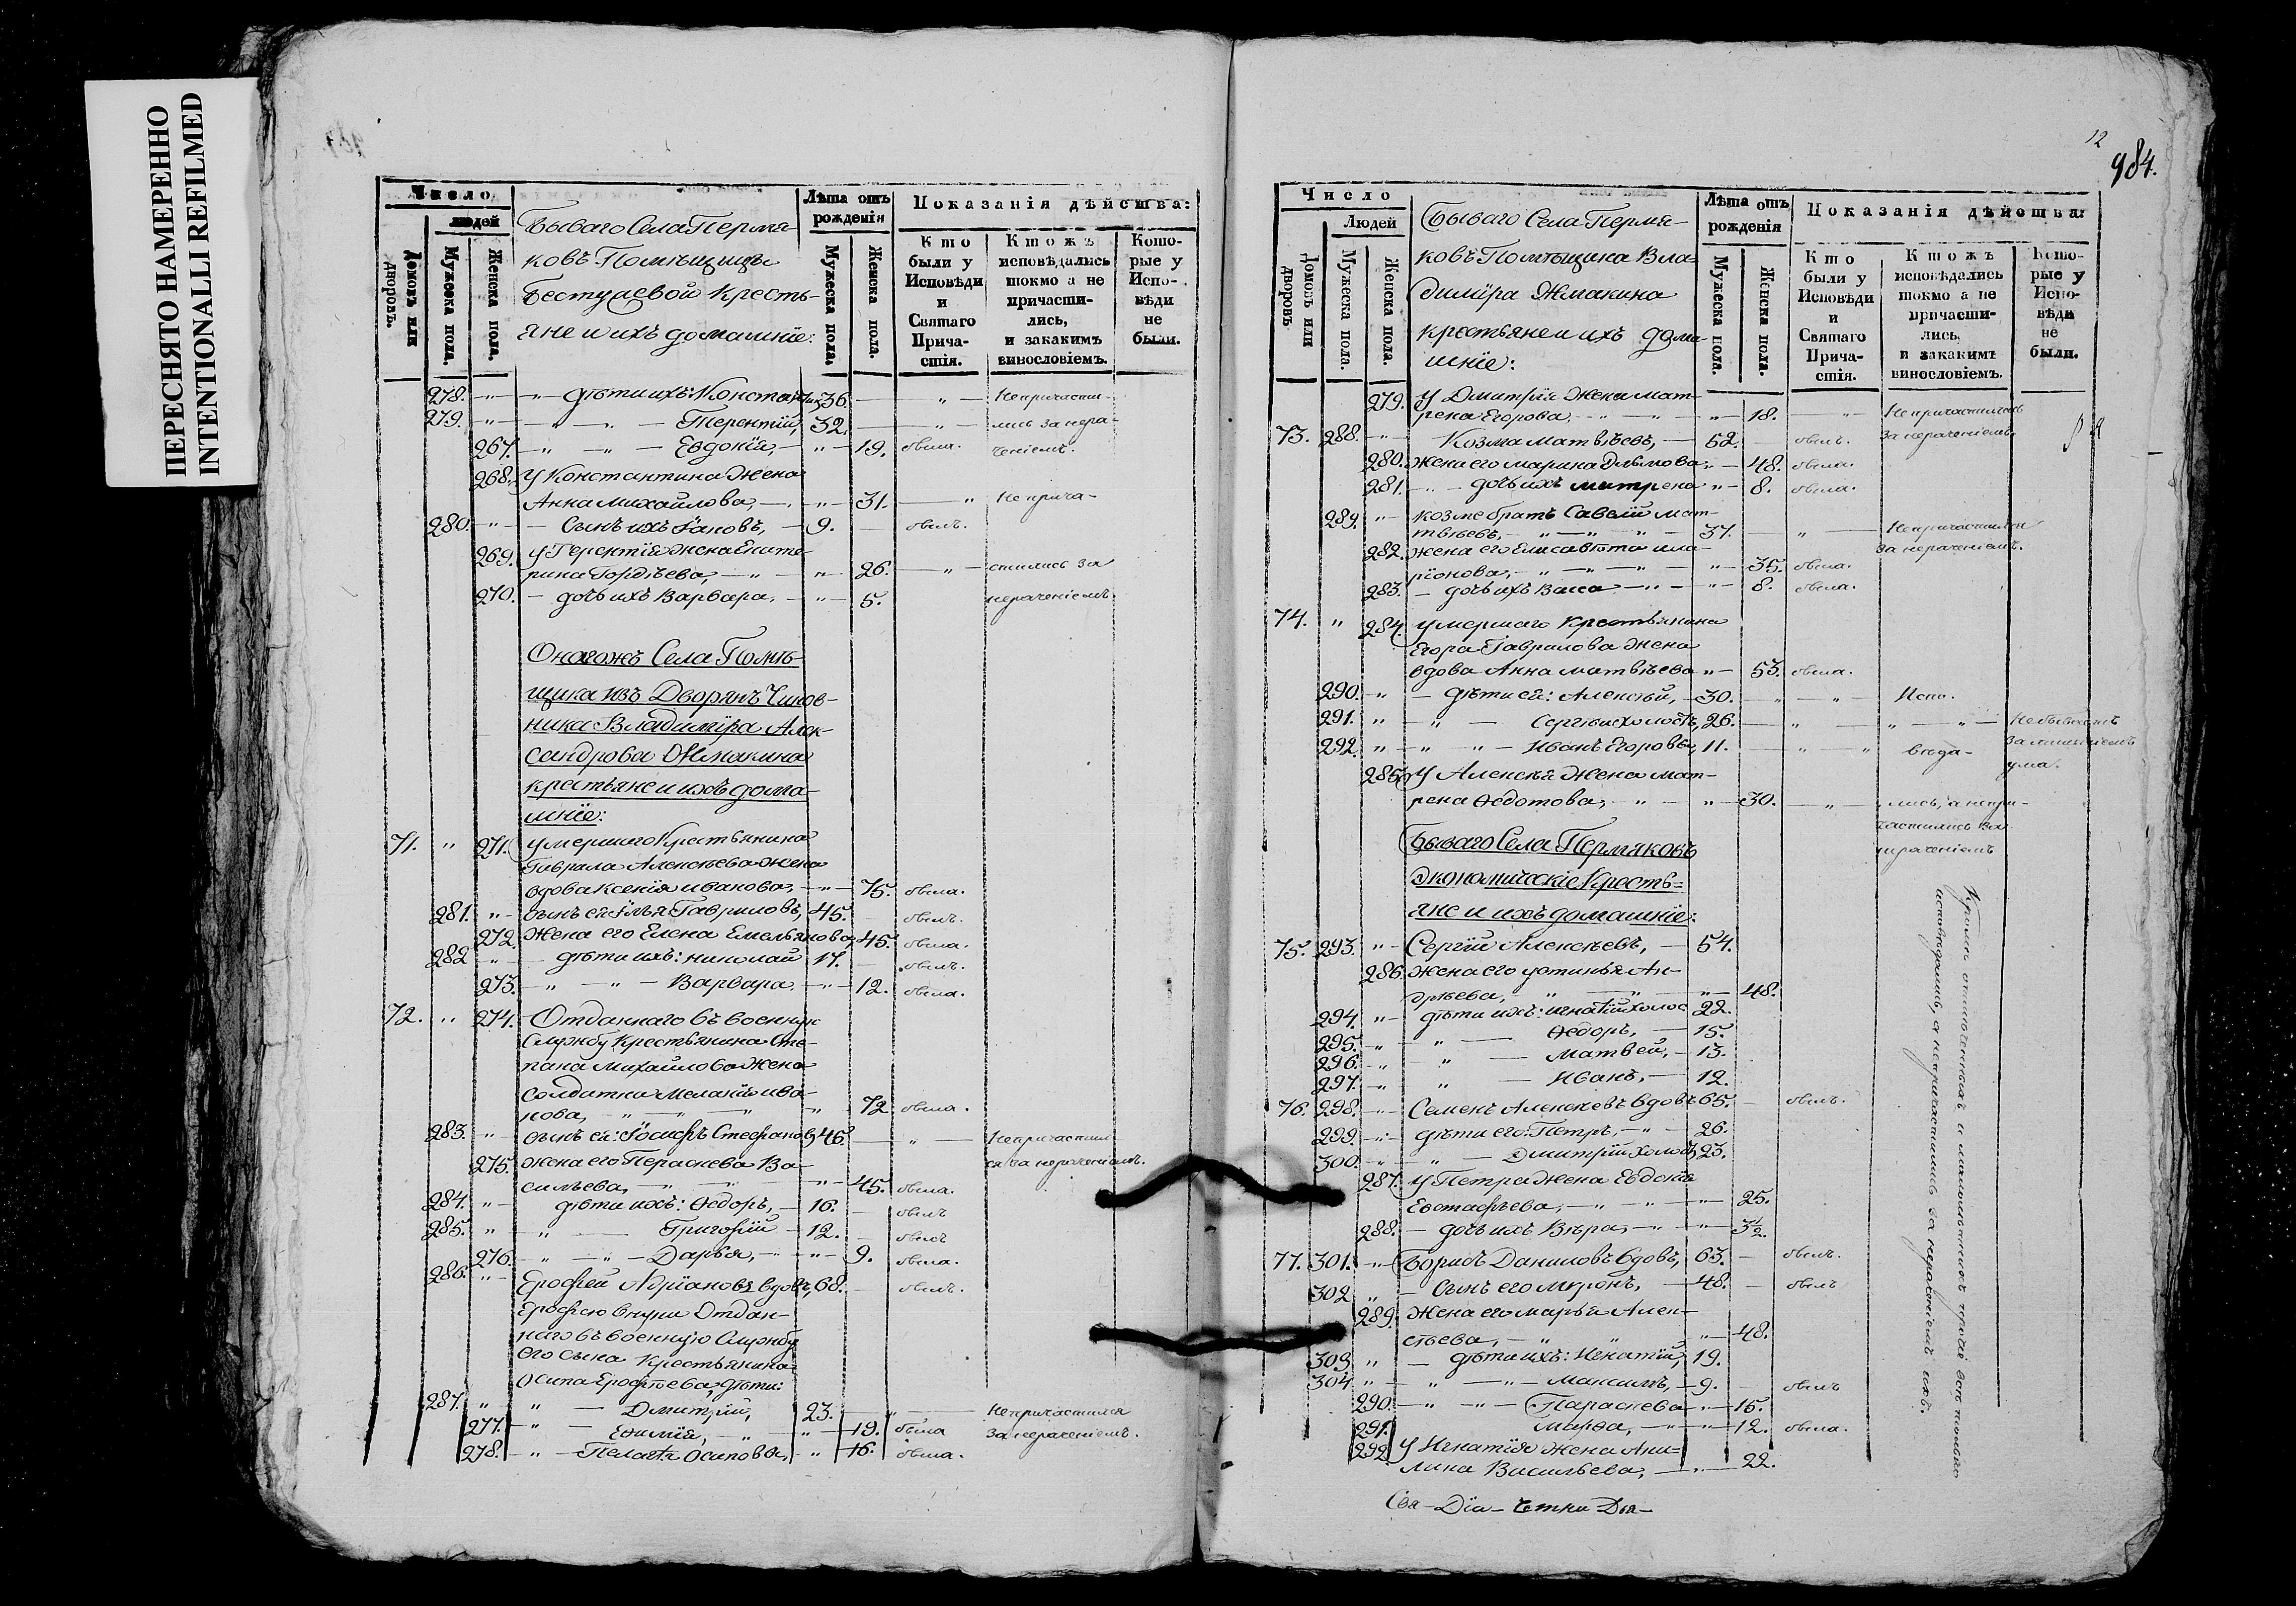 ПЕРЕСНЯТО НАМЕРЕННО
INTENTIONALLI REFILMED
Число
людей
Домовъ или дворовъ.
Мужеска пола.
Женска пола.
Бываго Села Пермя-
ковъ Помѣщицы
Бестужевой Кресть-
яне и ихъ домашніе:
Лѣта отъ рожденія
Мужеска пола.
Женска пола.
Показанія дѣйства:
Кто были у Исповѣди и Святаго Прича-стія.
Ктожъ исповѣдались токмо а не причасти-лись, и закакимъ винословіемъ.
Кото-рые у Испо-вѣди не были.
278. дѣти ихъ: Констант 36. Непричасти-
279. Терентій, 32. лись за нера-
267. Евдокія, 19. была. ченіемъ.
268. У Константина Жена
Анна Михайлова, 31. Неприча-
280. Сынъ ихъ Іаковъ, 9. былъ.
269. У Терентія жена Екате-
рина Гордѣева, 26. стились за
270. дочь ихъ Варвара, 5. нераченіемъ
Онагожъ Села Помѣ-
щика изъ Дворянъ Чинов-
ника Владиміра Алек-
сандрова Жмакина
крестьяне и ихъ дома-
шніе:
71. 271. умершаго Крестьянина
Гаврала Алексѣева жена
вдова Ксенія Иванова, 75. была.
281. сынъ ея Гавриловъ, 45. былъ.
272. Жена его Елена Емельянова, 45. была.
282 дѣти ихъ: Николай 17. былъ.
273. Варвара. 12. была.
72. 274. Отданнаго въ военную
Службу Крестьянина Сте-
пана Михайлова Жена
солдатка Меланія Ива-
нова, 72. была.
283. сынъ ея: Іосифъ Стефановъ 46. Непричастил
275. жена его Параскева Ва- ся за нераченіемъ.
сильева, 45. была.
284. дѣти ихъ: Ѳедоръ, 16. былъ
285. Григорій 12. былъ
276. Дарья, 9. была.
286. Ерофей Адріановъ вдовъ, 68. былъ.
Ерофею внуки Отдан-
наго въ военную Службу
его сына Крестьянина
Осипа Ерофѣева дѣти:
287. Дмитрій, 23. Непричастился
277. Евѳимія, 19. была за нераченіемъ.
278. Пелагія Осиповы, 16. была.
12
984.
Число
Людей
Домовъ или дворовъ
Мужеска пола.
Женска пола.
Бываго Села Пермя-
ковъ Помѣщика Вла-
диміра Жмакина
крестьяне и ихъ дома-
шніе:
Лѣта отъ рожденія
Мужеска пола.
Женска пола.
Показанія дѣйства:
Кто были у Исповѣди и Святаго Прича-стія.
Ктожъ исповѣдались токмо а не причасти-лись, и закакимъ винословіемъ.
Кото-рые у Испо-вѣди не были.
279. У Дмитрія Жена Мат-
рена Егорова, 18. Непричастилась
73. 288. Козма Матвѣевъ, 52. былъ. за нераченіемъ.
280. Жена его Марина 48. была.
281. дочь ихъ Матрена 8. была.
289. Козме братъ Савелій Мат-
вѣевъ, 37. Непричастился
282. Жена его Елисавѣта Ила- за нераченіемъ.
ріонова, 35. была.
283. дочь ихъ Васса 8. была.
74. 284. умершаго Крестьянина
Егора Гаврилова Жена
вдова Анна Матвѣева 53. была.
290. дѣти ея: Алексѣй, 30. Испо-
291. Сергѣй холостъ, 26. Небывшемъ
292. Иванъ Егоровы, 11. вѣда-
ума.
285. У Алексѣя Жена Мат-
рена Ѳедотова, 30. лись, а непри-
частились за
нераченіемъ
Бываго Села Пермяковъ
Экономическіе Кресть-
яне и ихъ домашніе:
75. 293. Сергій Алексѣевъ, 54.
286. Жена его Устинья Ан-
дрѣева, 48.
294. дѣти ихъ: Игнатій холос 22.
295. Ѳедоръ, 15.
296. Матвей, 13.
297. Иванъ, 12.
76. 298. Семенъ Алексѣевъ вдовъ 65. былъ.
299. дѣти его: Петръ, 26.
300. Дмитрій холостъ 23.
287. У Петра Жена Евдокія
Евстафьева, 25.
288. дочь ихъ Вѣра, 3½.
77. 301. Борисъ Даниловъ вдовъ, 63. былъ.
302 Сынъ его Миронъ, 48. былъ
289. Жена его Марья Алек-
сѣева, 48.
303 дѣти ихъ: Игнатій, 19.
304 Максимъ, 9. былъ
290. Параскева 15.
291. Марѳа, 12. была.
292. У Игнатія жена Аки-
лина Васильева, 22.
Кромѣ отмѣченныхъ и прочіе всѣ только
исповѣдались, а непричастились за нераченіемъ ихъ.